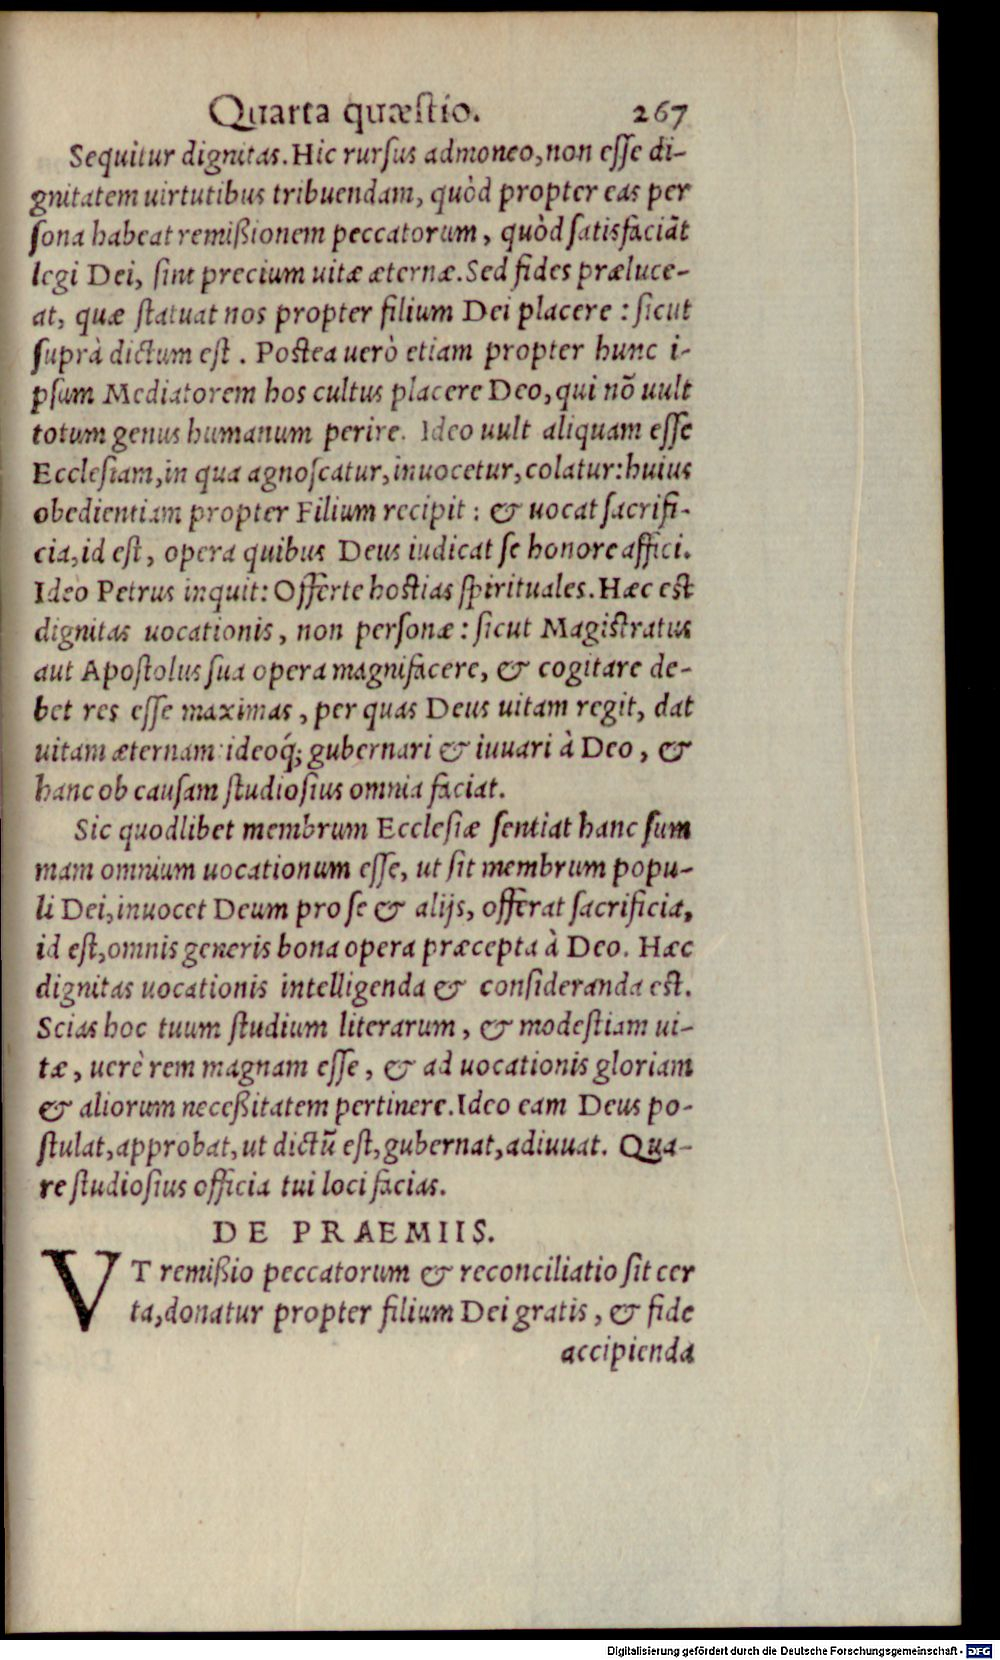 Quarta quæſtio. 267
Sequitur dignitas. Hic rurſus admoneo, non eſſe di-
gnitatem uirtutibus tribuendam, quòd propter eas per
ſona habeat remißionem peccatorum, quòd ſatisfaciāt
legi Dei, ſint precium uitæ æternæ. Sed fides præluce-
at, quæ ſtatuat nos propter filium Dei placere: ſicut
ſuprà dictum eſt. Poſtea uerò etiam propter hunc i-
pſum Mediatorem hos cultus placere Deo, qui nō uult
totum genus humanum perire. Ideo uult aliquam eſſe
Eccleſiam, in qua agnoſcatur, inuocetur, colatur: huius
obedientiam propter Filium recipit: & uocat ſacrifi-
cia, id eſt, opera quibus Deus iudicat ſe honore affici.
Ideo Petrus inquit: Offerte hoſtias ſpirituales. Hæc eſt
dignitas uocationis, non perſonæ: ſicut Magiſtratus
aut Apoſtolus ſua opera magnifacere, & cogitare de-
bet res eſſe maximas, per quas Deus uitam regit, dat
uitam æternam: ideoq́; gubernari & iuuari à Deo, &
hanc ob cauſam ſtudioſius omnia faciat.
Sic quodlibet membrum Eccleſiæ ſentiat hanc ſum
mam omnium uocationum eſſe, ut ſit membrum popu-
li Dei, inuocet Deum pro ſe & alijs, offerat ſacrificia,
id eſt, omnis generis bona opera præcepta à Deo. Hæc
dignitas uocationis intelligenda & conſideranda eſt.
Scias hoc tuum ſtudium literarum, & modeſtiam ui-
tæ, uerè rem magnam eſſe, & ad uocationis gloriam
& aliorum neceßitatem pertinere. Ideo eam Deus po-
ſtulat, approbat, ut dictū eſt, gubernat, adiuuat. Qua-
re ſtudioſius officia tui loci facias.
DE PRAEMIIS.
VT remißio peccatorum & reconciliatio ſit cer
ta, donatur propter filium Dei gratis, & fide
accipienda
Digitalisierung gefördert durch die Deutsche Forschungsgemeinschaft - DFG